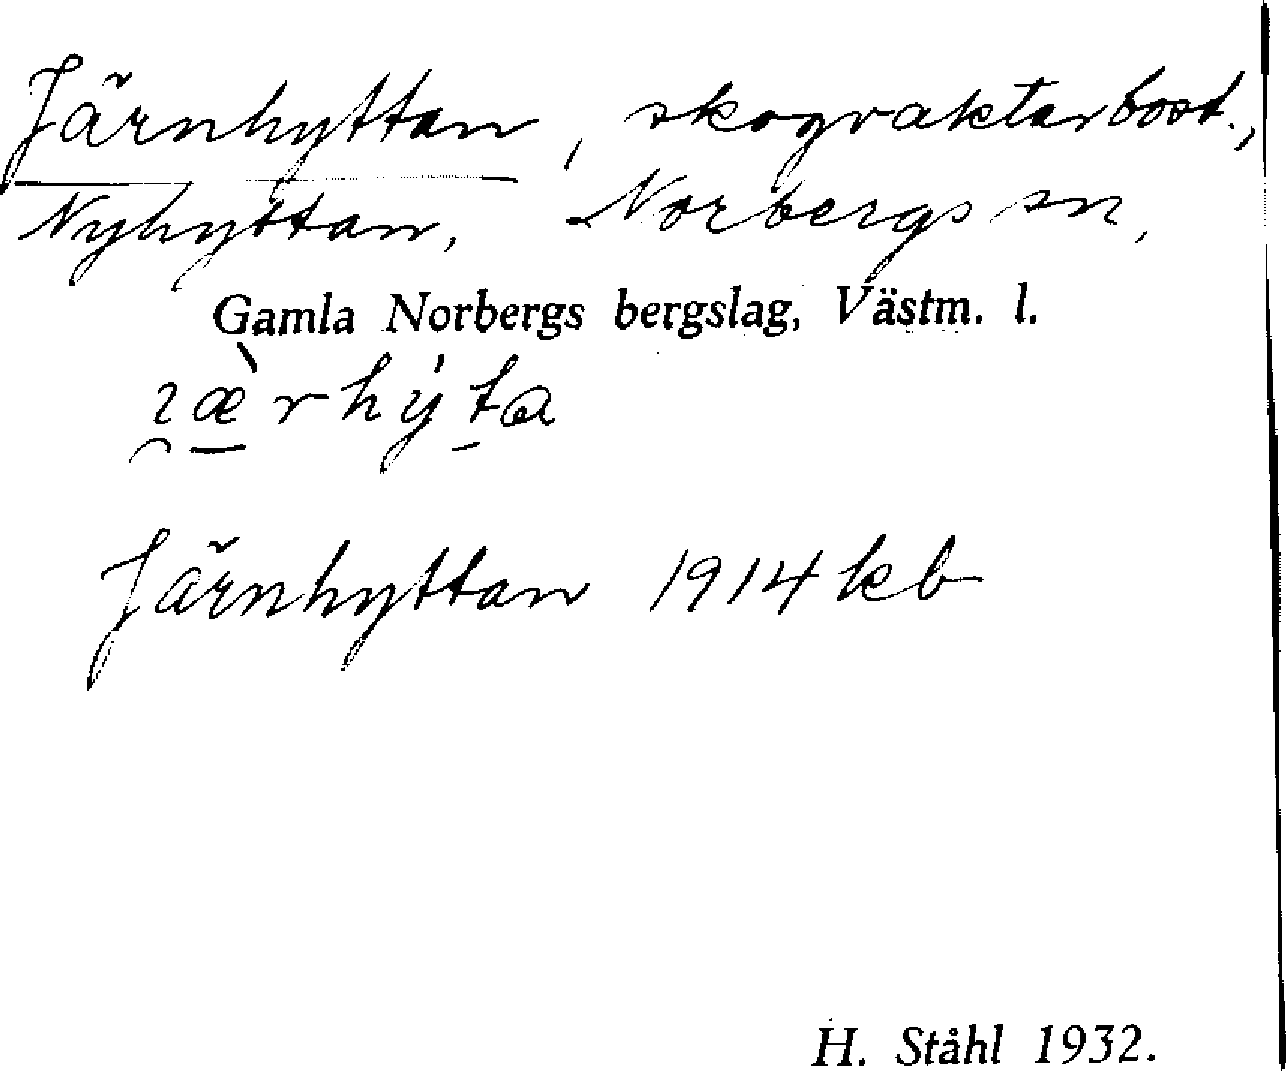 Järnhyttan, skogvaktarbost.,
Nyhyttan, Norbergs sn,
Gamla Norbergs bergslag, Västm. l.
Järnhyttan 1914 kb
H. Ståhl 1932.